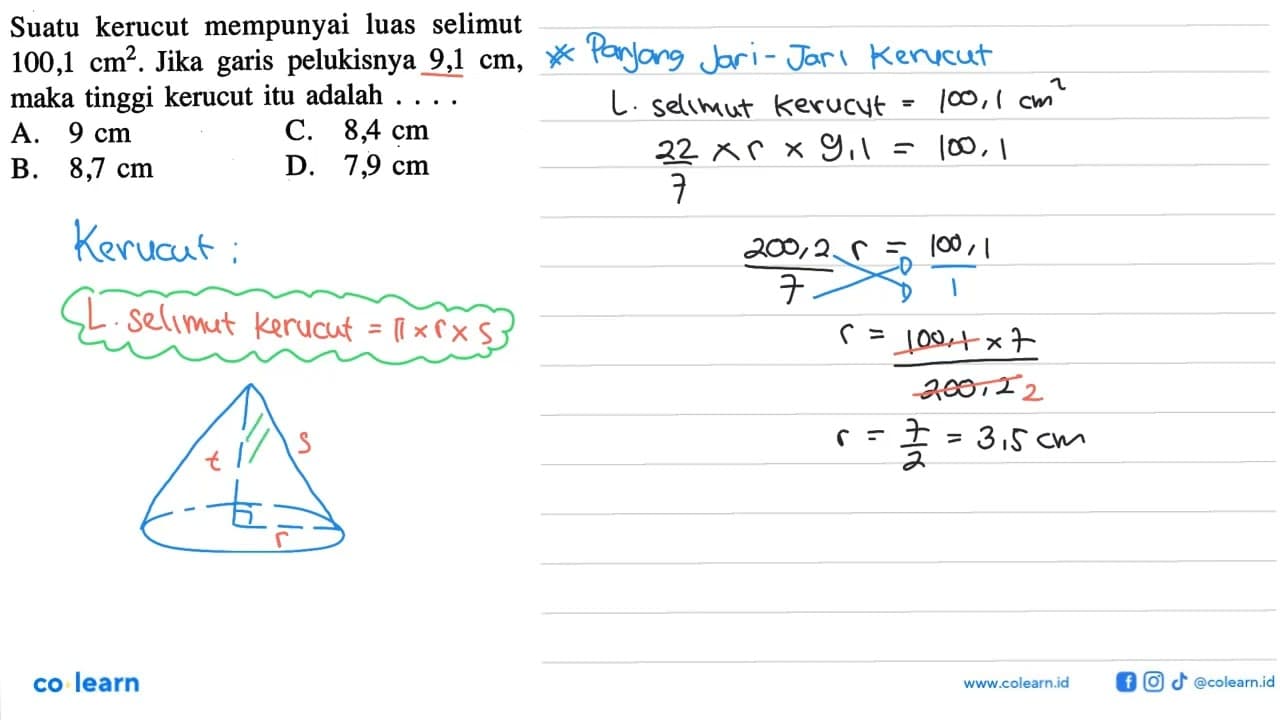 Suatu kerucut mempunyai luas selimut
100,1 cm². Jika garis pelukisnya 9,1 cm,
maka tinggi kerucut itu adalah . . . .
A. 9 cm C. 8,4 cm
B. 8,7 cm D. 7,9 cm
Kerucut :
L. selimut kerucut = π × r × s
t s
r
* Panjang Jari-Jari Kerucut
L. selimut kerucut = 100,1 cm²
22/7 × r × 9,1 = 100,1
200,2/7 r = 100,1/1
r = 100,1 × 7 / 200,2 2
r = 7/2 = 3,5 cm
co learn
www.colearn.id @colearn.id